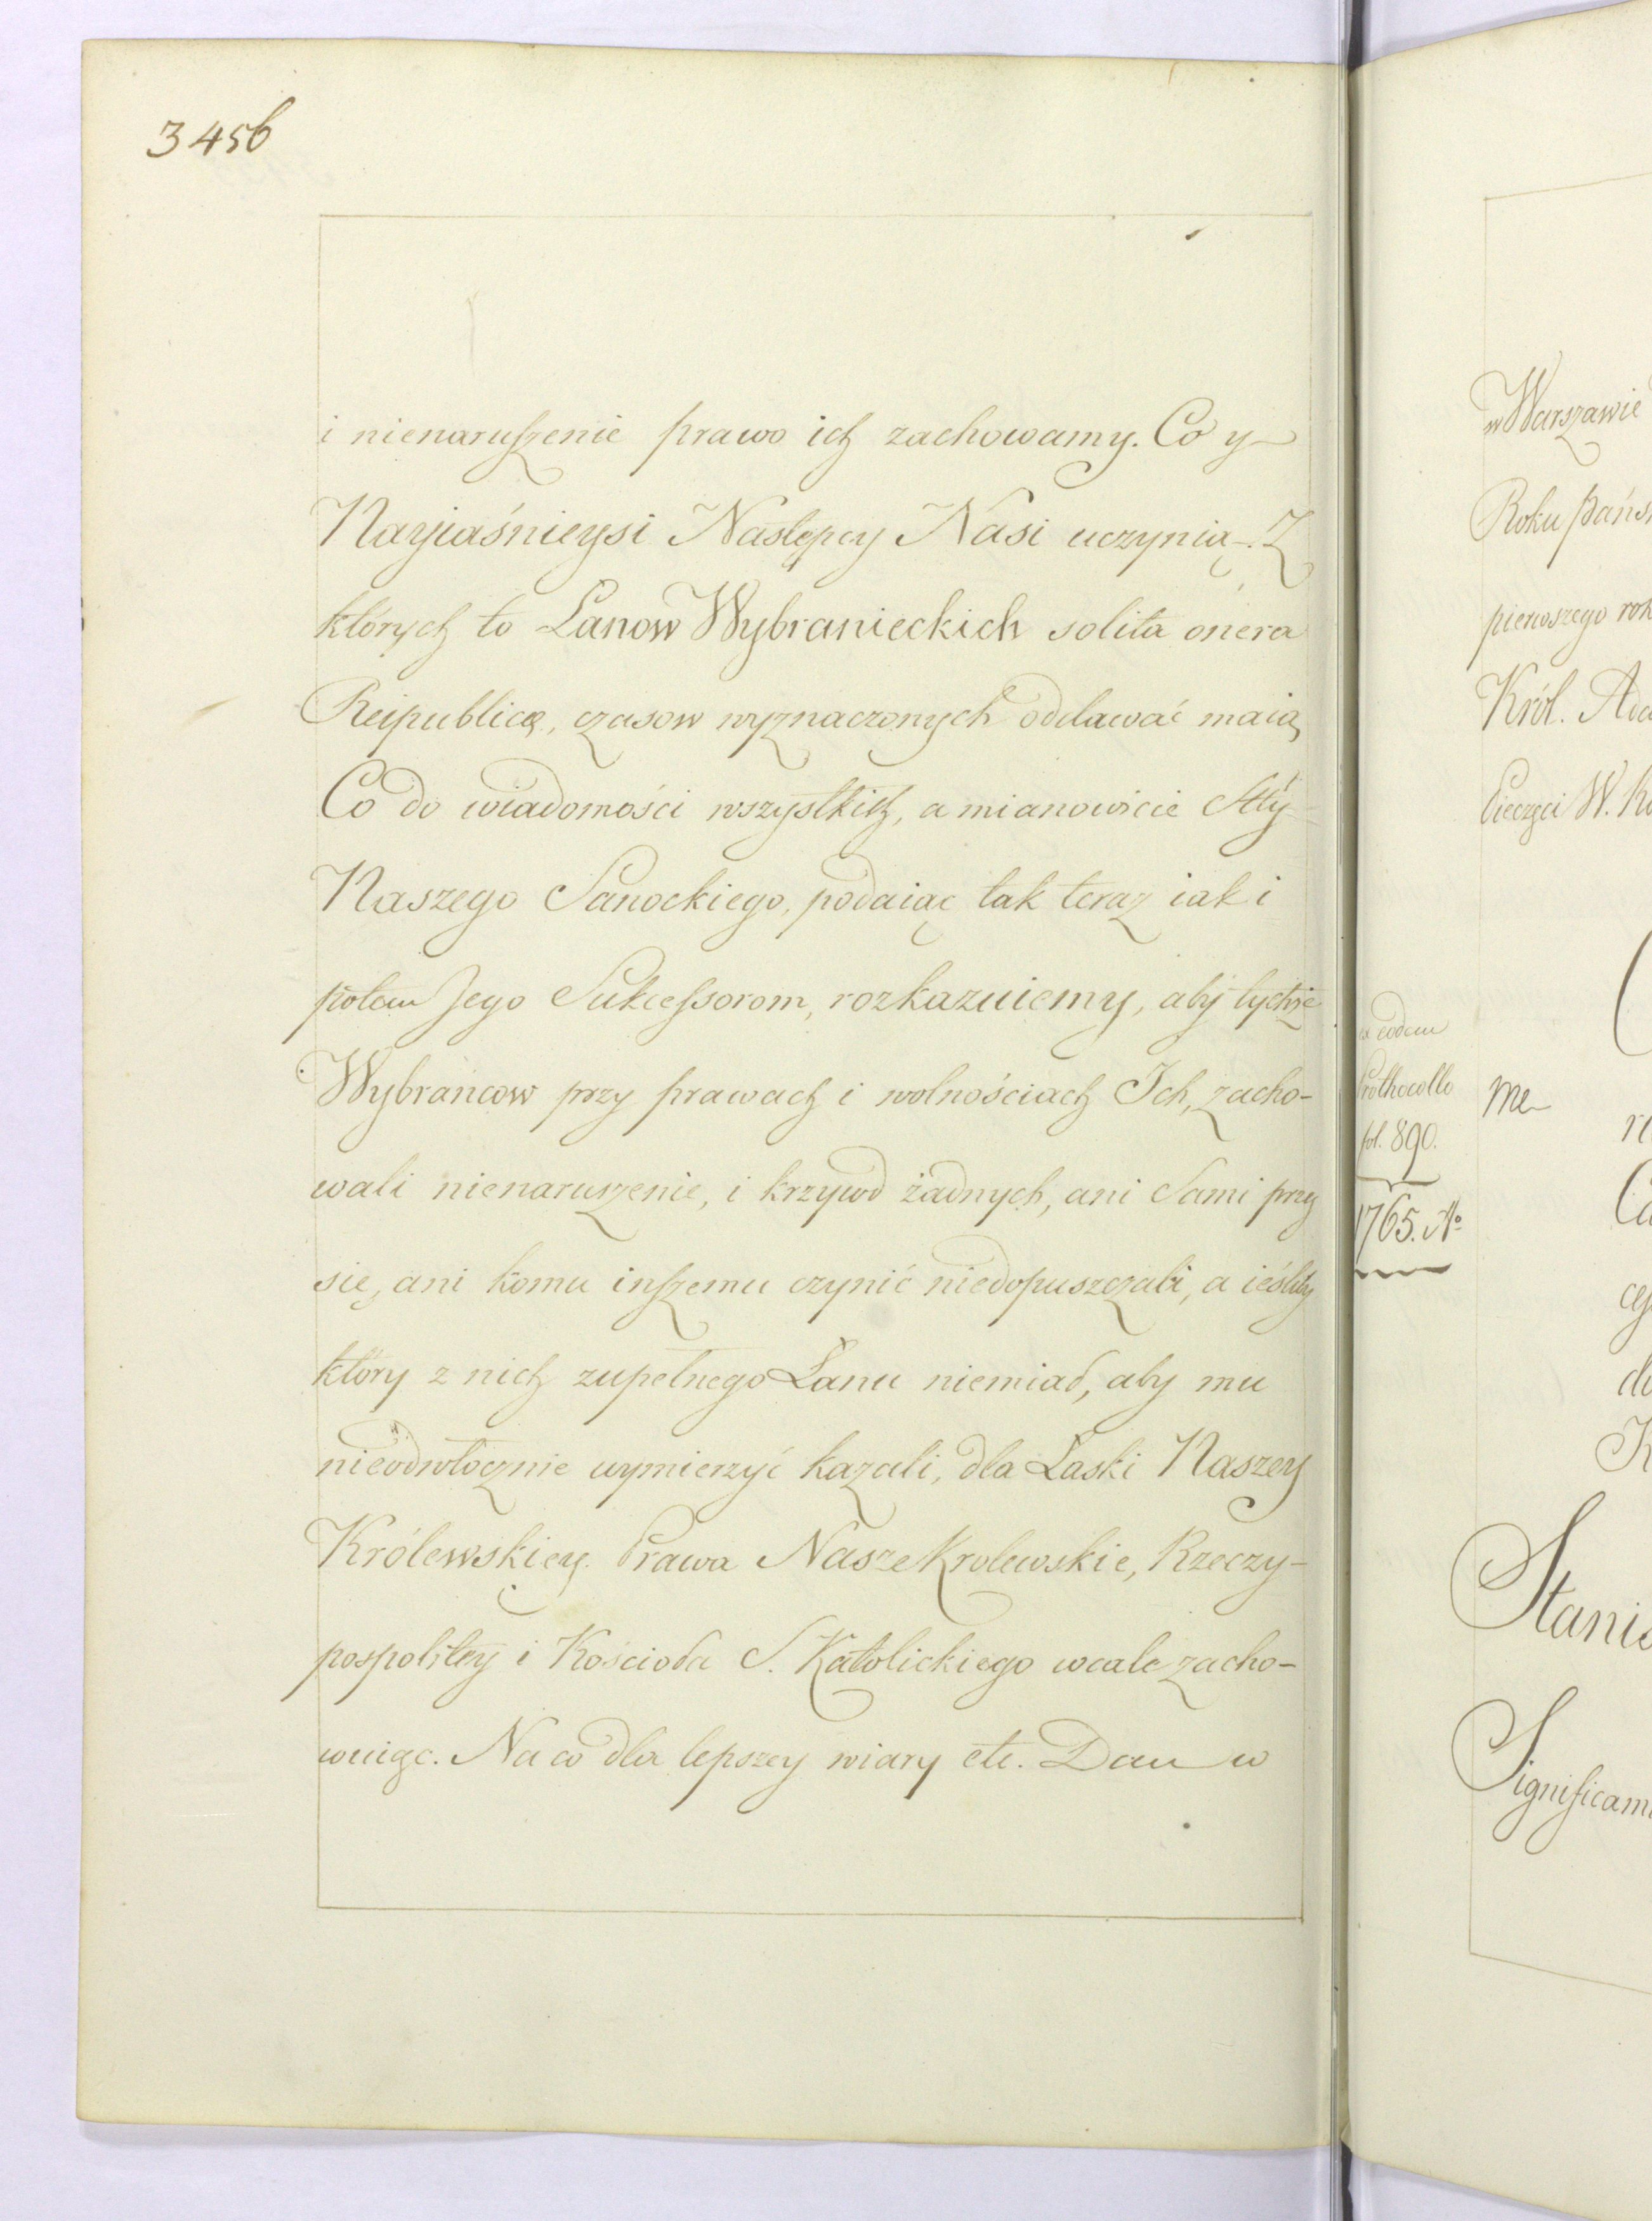 3456
i nienaruszenie prawo ich zachowamy. Co y
Nayiaśnieysi Następcy Nasi uczynią. Z
których to Łanow Wybranieckich solita onera
Reipublicæ, czasow wyznaczonych oddawać maią
Co do wiadomości wszystkich, a mianowicie Stty
Naszego Sanockiego, podaiąc tak teraz iak i
potem Jego Sukcessorom, rozkazuiemy, aby tychże
Wybrancow przy prawach i wolnościach Ich, zacho-
wali nienaruszenie, i krzywd żadnych, ani Sami przez
się, ani komu inszemu czynić niedopuszczali, a ieśliby
który z nich zupełnego Łanu niemiał, aby mu
nieodwłocznie wymierzyć kazali, dla Łaski Naszey
Królewskiey. Prawa Nasze Krolewskie, Rzeczy-
pospolitey i Kościoła S. Katolickiego wcale zacho-
wuiąc. Na co dla lepszey wiary etc. Dan w
w Warszawie
Roku Pańs
pierwszego rok
Król. Ad
Pieczęci W. Ko
ex eodem
Prothocollo
fol. 890.
1765. No
Me
Ca
Stanis
Significam